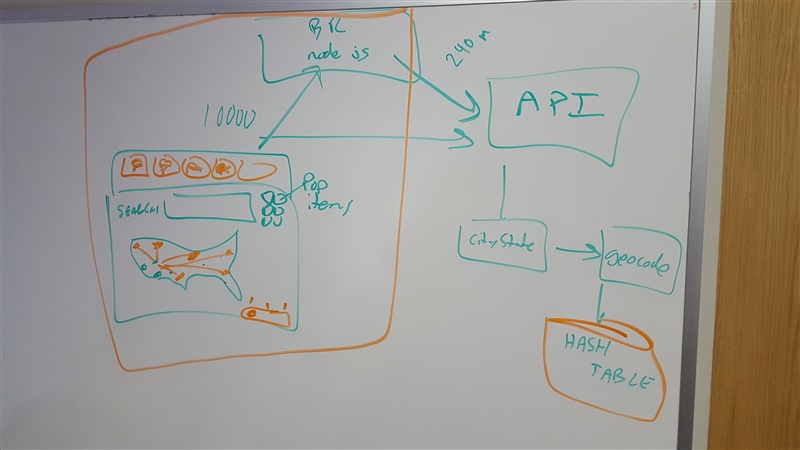 node js
240
10000
API
SEARCH
Pop
items
City, State
geocode
HASH
TABLE